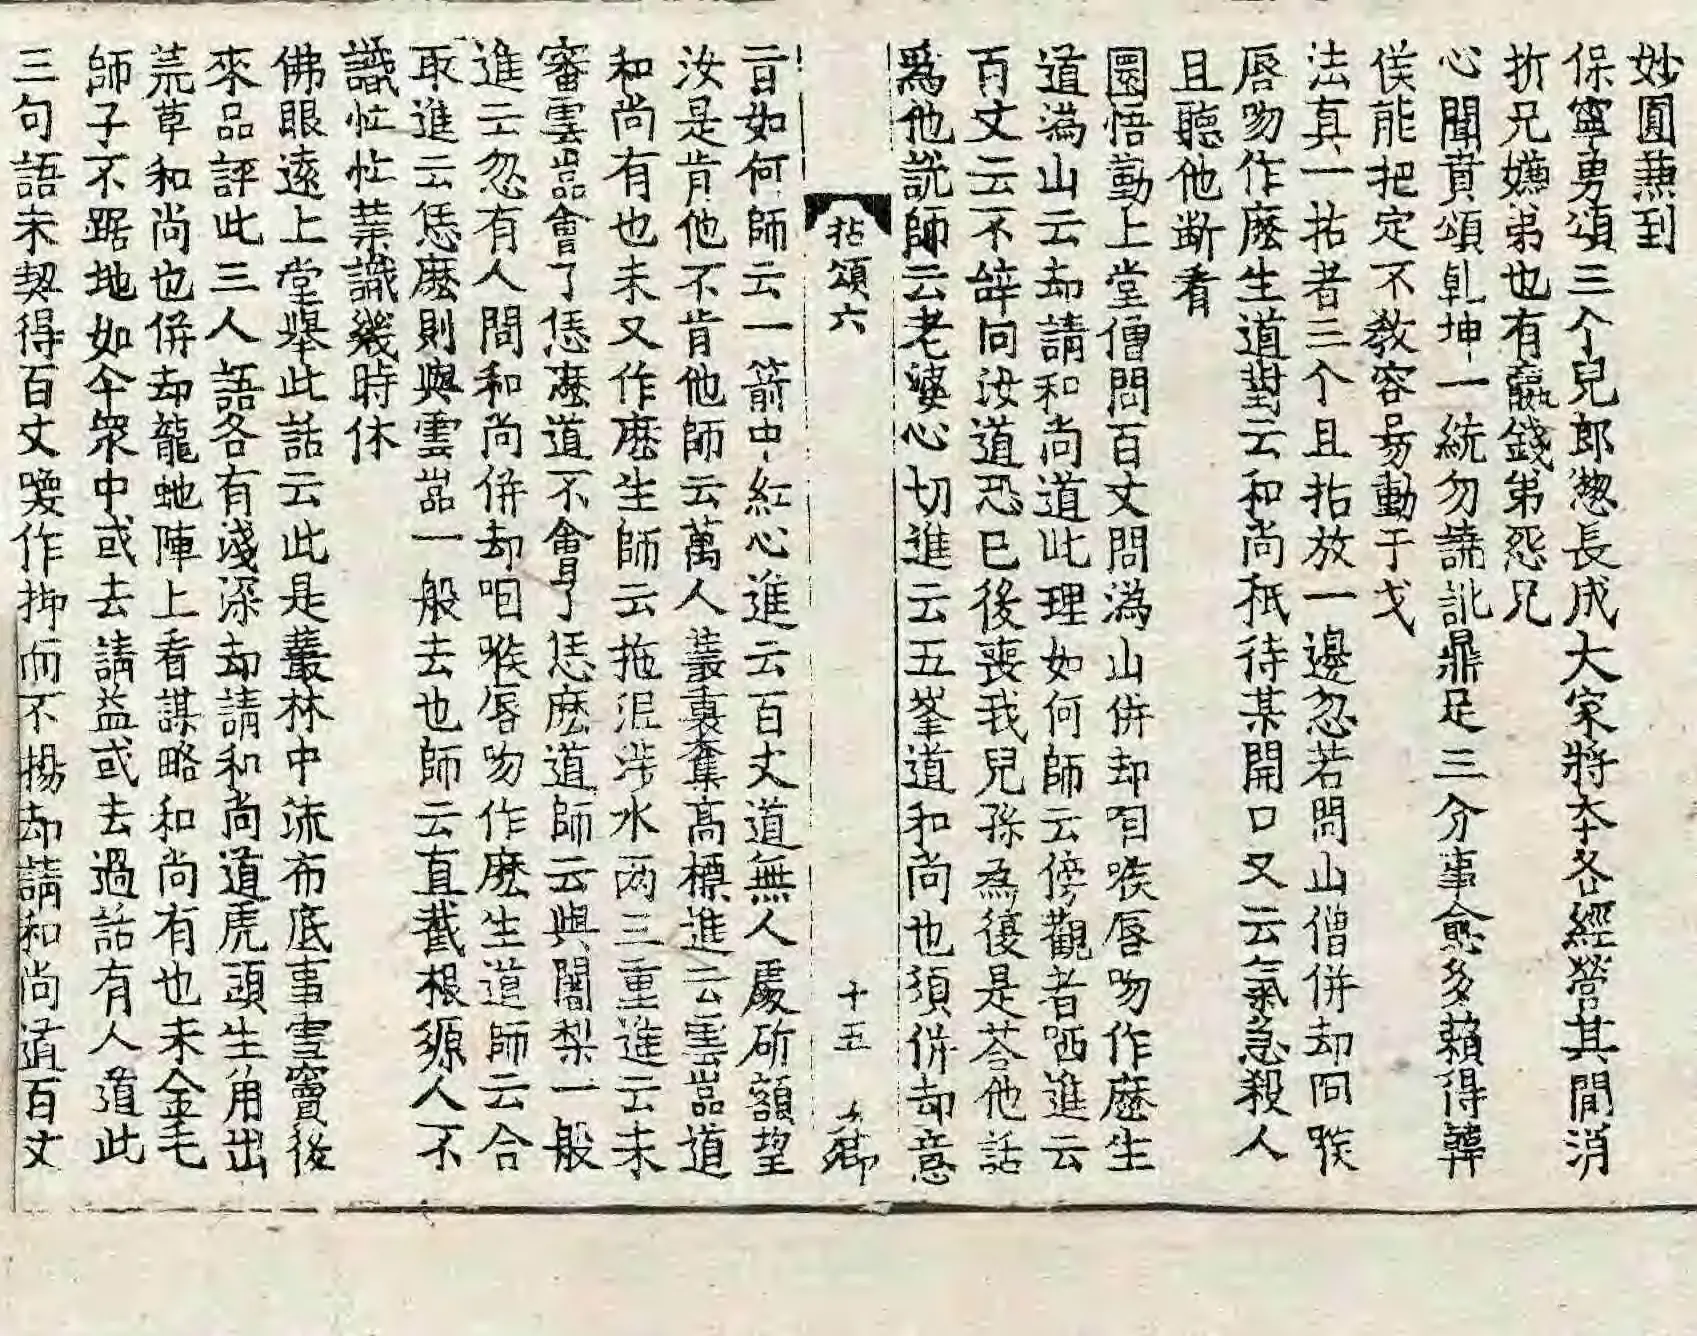 妙圓兼到
保寧勇頌三个兒郎惣長成大家將本各經營其間消
折兄嫌弟也有贏錢弟怨兄
心聞賁頌乹坤一統勿譊訛鼎足三分事愈多賴得韓
侯能把定不敎容昜動于戈
法真一拈者三个且拈放一邊忽若問山僧併却咽喉
唇吻作麽生道對云和尚秖待某開口又云氣急殺人
且聽他断看
圜悟勤上堂僧問百丈問潙山併却咽喉唇吻作麽生
道潙山云却請和尚道此理如何師云傍觀者哂進云
百丈云不辝向汝道恐已後喪我兒孫為復是荅他話
爲他説師云老婆心切進云五峯道和尚也須併却意
拈頌六 十五
旨如何師云一箭中紅心進云百丈道無人處斫額望
汝是肯他不肯他師云萬人叢裏奪高標進云雲嵓道
和尚有也未又作麽生師云拖泥涉水两三重進云未
審雲嵓會了恁麽道不會了恁麽道師云與闍梨一般
進云忽有人問和尚併却咽喉唇吻作麽生道師云合
取進云恁麽則與雲嵓一般去也師云直截根源人不
識忙忙業識幾時休
佛眼遠上堂舉此話云此是叢林中流布底事雪竇後
來品評此三人語各有淺深却請和尚道虎頭生角出
荒草和尚也併却龍虵陣上看謀略和尚有也未金毛
師子不踞地如今衆中或去請益或去過話有人道此
三句語未契得百丈喚作抑而不揚却請和尚道百丈